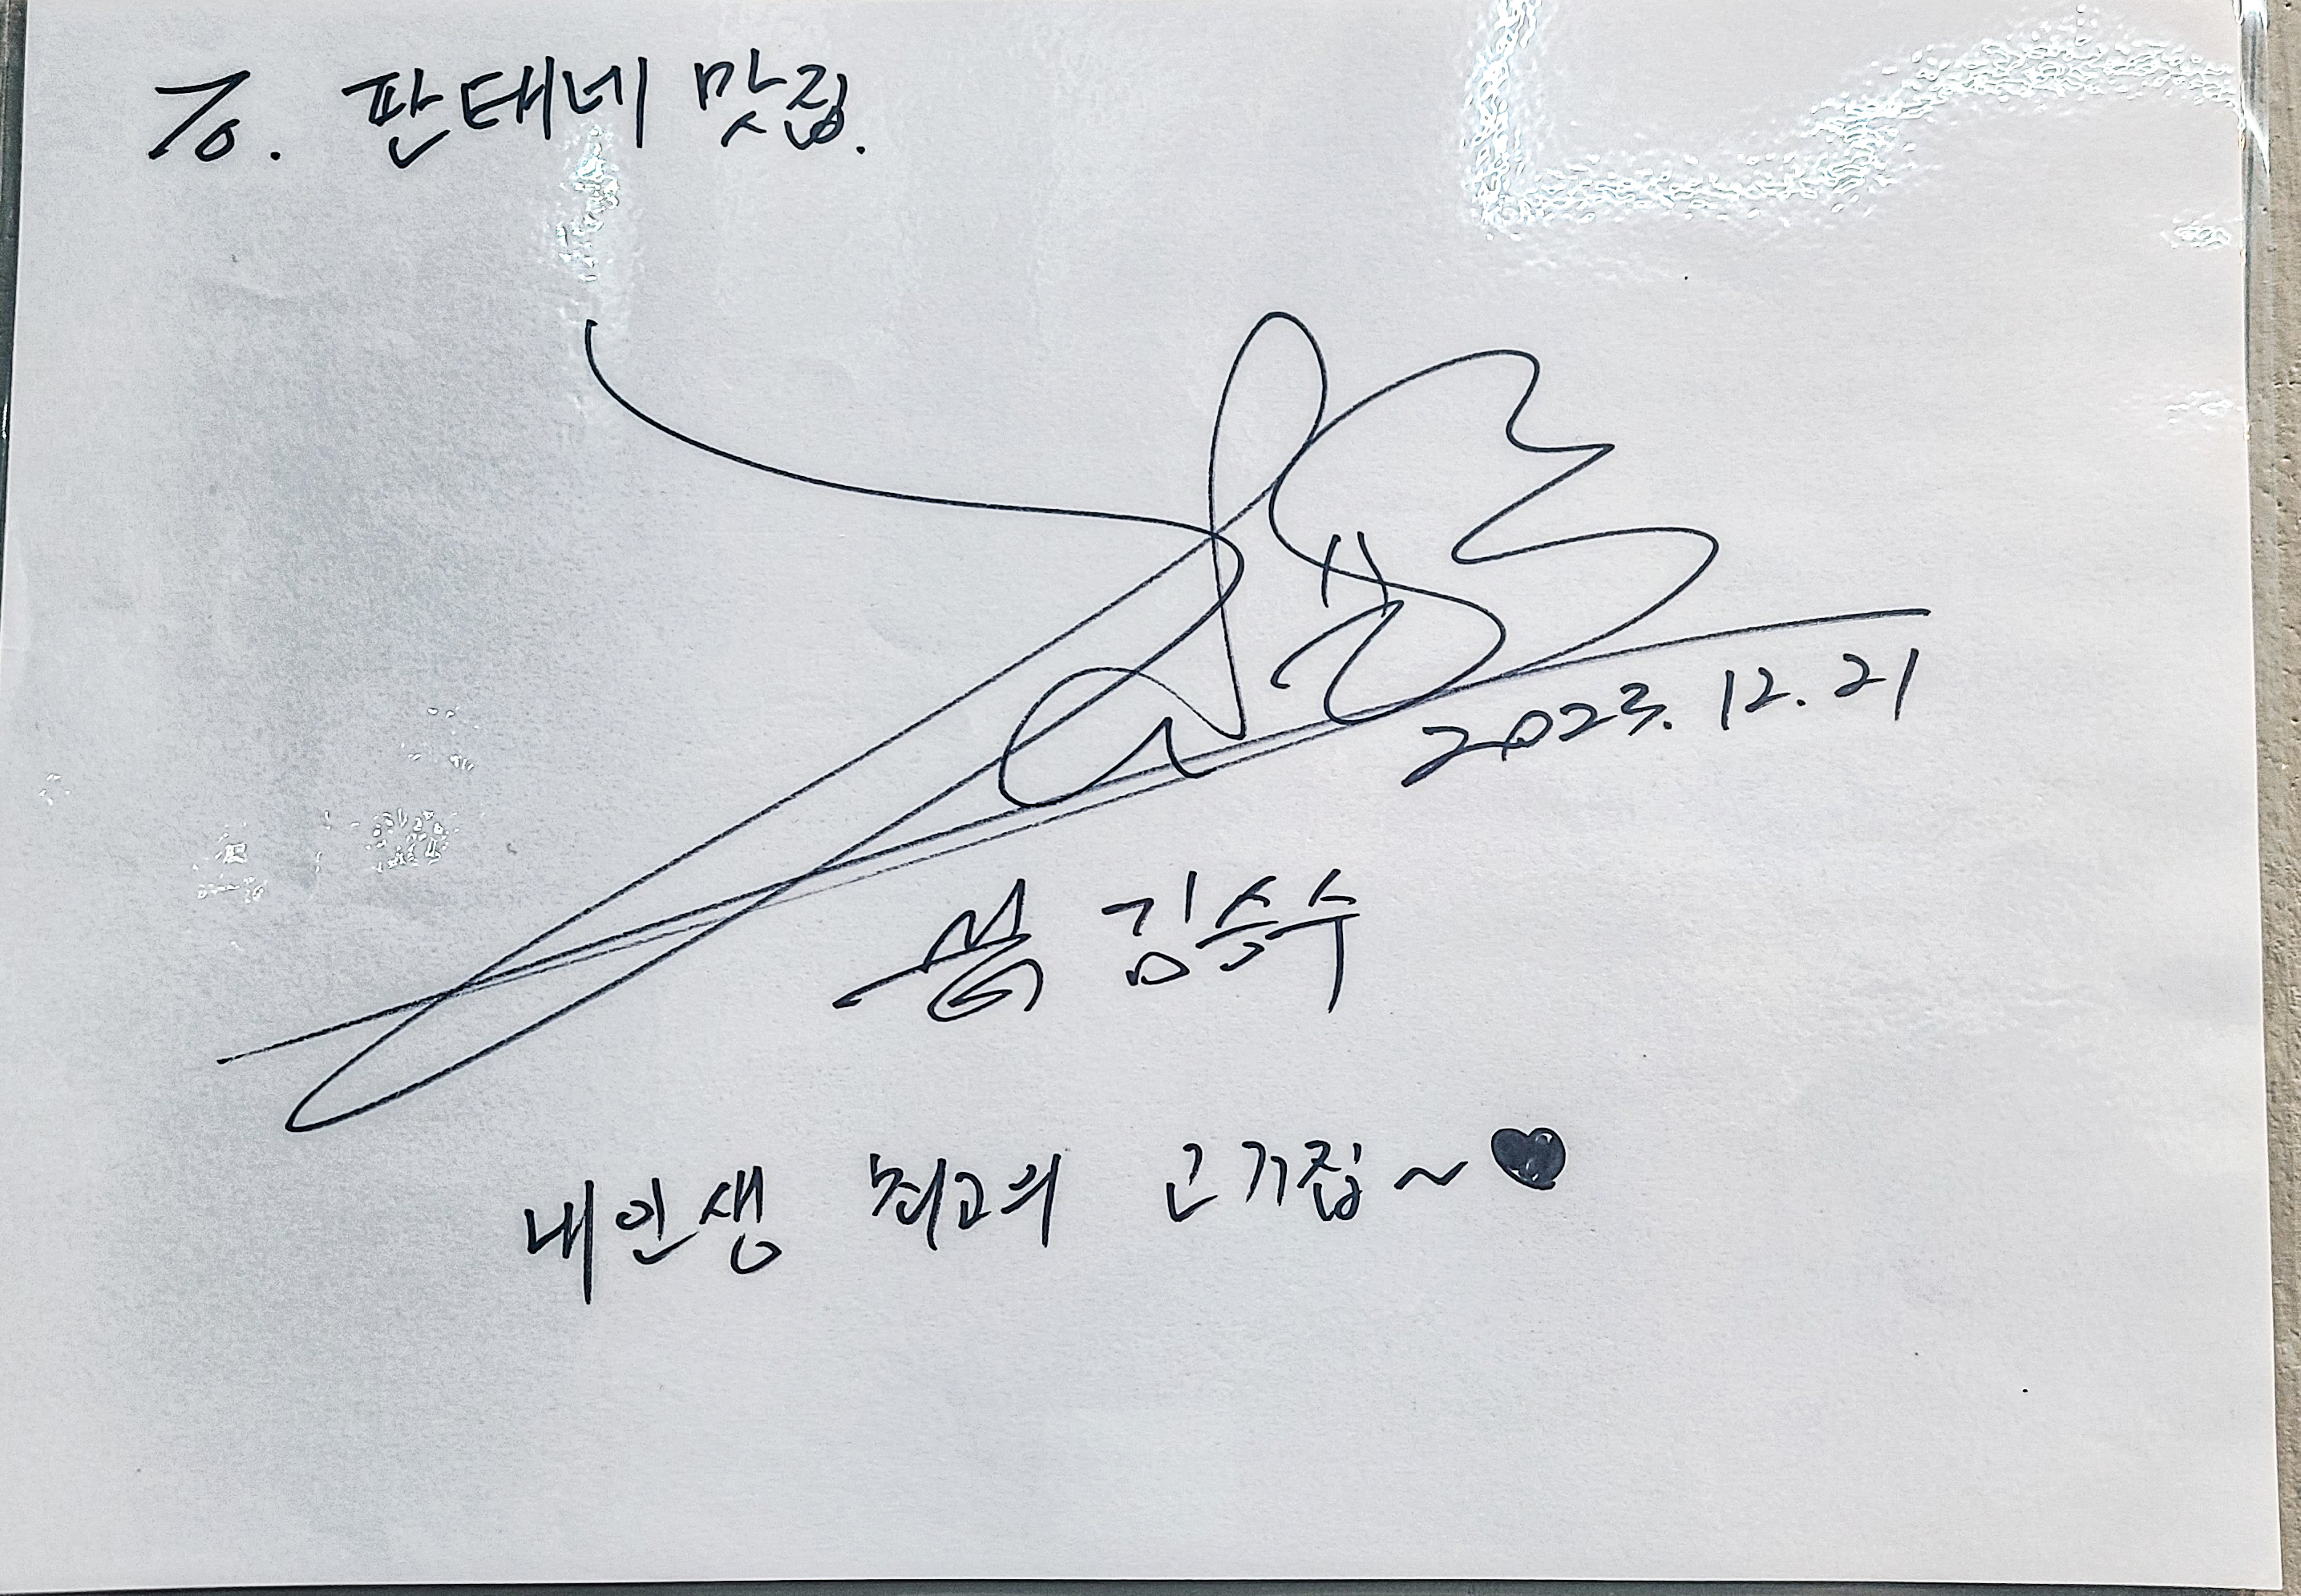 To. 판태네 맛집.
2023. 12. 21
김승수
내인생 최고의 고기집~♥